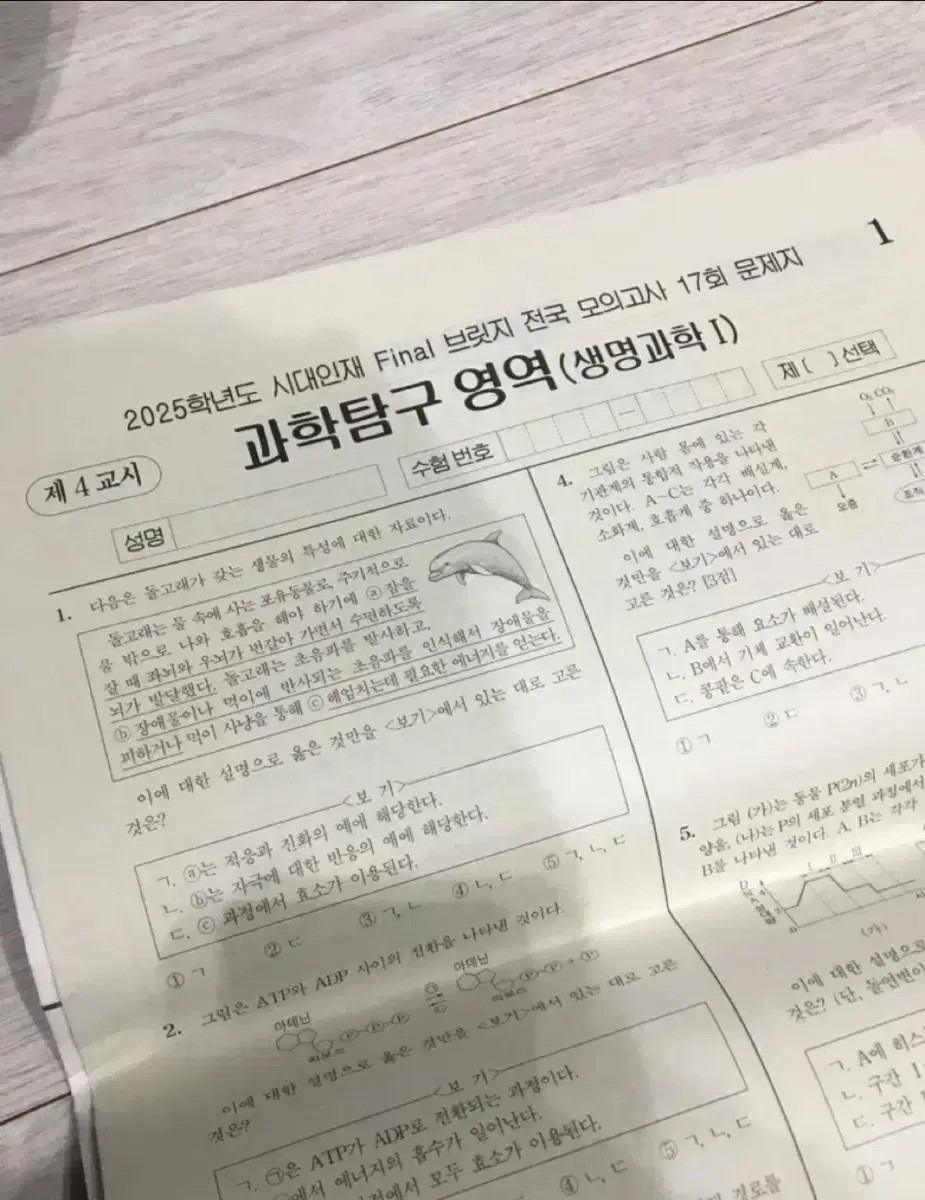 1
2025학년도 시대인재 Final 브릿지 전국 모의고사 17회 문제지
과학탐구 영역(생명과학 I)
제 4 교시
성명
수험 번호
제 ( ) 선택
1. 다음은 돌고래가 갖는 생물의 특성에 대한 자료이다.
돌고래는 물 속에 사는 포유동물로, 주기적으로
물 밖으로 나와 호흡을 해야 하기에 ⓐ 잠을
잘 때 좌뇌와 우뇌가 번갈아 가면서 수면하도록
뇌가 발달했다. 돌고래는 초음파를 발사하고,
ⓑ 장애물이나 먹이에 반사되는 초음파를 인식해서 장애물을
피하거나 먹이 사냥을 통해 ⓒ 헤엄치는데 필요한 에너지를 얻는다.
이에 대한 설명으로 옳은 것만을 <보기>에서 있는 대로 고른
것은?
<보 기>
ㄱ. ⓐ는 적응과 진화의 예에 해당한다.
ㄴ. ⓑ는 자극에 대한 반응의 예에 해당한다.
ㄷ. ⓒ 과정에서 효소가 이용된다.
① ㄱ ② ㄷ ③ ㄱ, ㄴ ④ ㄴ, ㄷ ⑤ ㄱ, ㄴ, ㄷ
2. 그림은 ATP와 ADP 사이의 전환을 나타낸 것이다.
아데닌
P P P
㉠
아데닌
P P + P
이에 대한 설명으로 옳은 것만을 <보기>에서 있는 대로 고른
것은?
<보 기>
ㄱ. ㉠은 ATP가 ADP로 전환되는 과정이다.
에서 에너지의 흡수가 일어난다.
에서 모두 효소가 이용된다.
④ ㄴ, ㄷ ⑤ ㄱ, ㄴ, ㄷ
4. 그림은 사람 몸에 있는 각
기관계의 통합적 작용을 나타낸
것이다. A~C는 각각 배설계,
소화계, 호흡계 중 하나이다.
O₂ CO₂
B
A
순환계
오줌
조직
이에 대한 설명으로 옳은
것만을 <보기>에서 있는 대로
고른 것은? [3점]
<보 기>
ㄱ. A를 통해 요소가 배설된다.
ㄴ. B에서 기체 교환이 일어난다.
ㄷ. 콩팥은 C에 속한다.
① ㄱ ② ㄷ ③ ㄱ, ㄴ
5. 그림 (가)는 동물 P(2n)의 세포가
양을, (나)는 P의 세포 분열 과정에서
B를 나타낸 것이다. A, B는 각각
I II III
(가)
이에 대한 설명으로
것은? (단, 돌연변이
ㄱ. A에 히스
ㄴ. 구간 I
ㄷ. 구간
① ㄱ